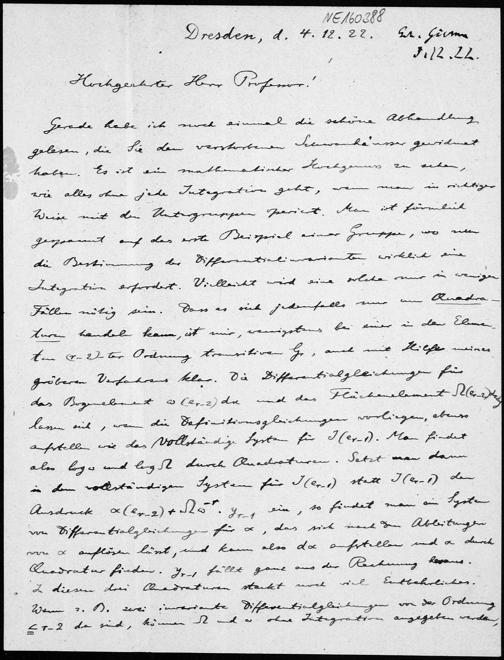 NE160388
Dresden, d. 4.12.22.
Hochgeehrter Herr Professor!
Gerade habe ich noch einmal die schöne Abhandlung
gelesen, die Sie dem verstorbenen gewidmet
haben. Es ist ein mathematischer Hochgenuss zu sehen,
wie alles ohne jede Integration geht, wenn man in richtiger
Weise mit den Untergruppen operiert. Man ist förmlich
gespannt auf das erste Beispiel einer Gruppe, wo nun
die Bestimmung der Differentialinvarianten wirklich eine
Integration erfordert. Vielleicht wird eine solche nur in wenigen
Fällen nötig sein. Dass es sich jedenfalls nur um Quadra-
turen handeln kann, ist mir, wenigstens bei einer in den Elemen-
ten (r-2)ter Ordnung transitiven Gr, auch mit Hilfe meines
gröberen Verfahrens klar. Die Differentialgleichungen für
das Bogenelement ω(er-2)dx und das Flächenelement
lassen sich, wenn die Definitionsgleichungen vorliegen, ebenso
aufstellen wie das vollständige System für J(er-1). Man findet
also log ω und log Ω durch Quadraturen. Setzt man dann
in dem vollständigen System für J(er-1) statt J(er-1) den
Ausdruck α(er-2) + yr-1 ein, so findet man ein System
von Differentialgleichungen für α, das sich nach den Ableitungen
von α auflösen lässt, und kann also dα aufstellen und α durch
Quadratur finden. yr-1 fällt ganz aus der Rechnung heraus.
In diesen drei Quadraturen steckt noch viel Entbehrliches.
Wenn z. B. zwei invariante Differentialgleichungen von der Ordnung
≤ r-2 da sind, können Ω und ω ohne Integration angegeben werden,